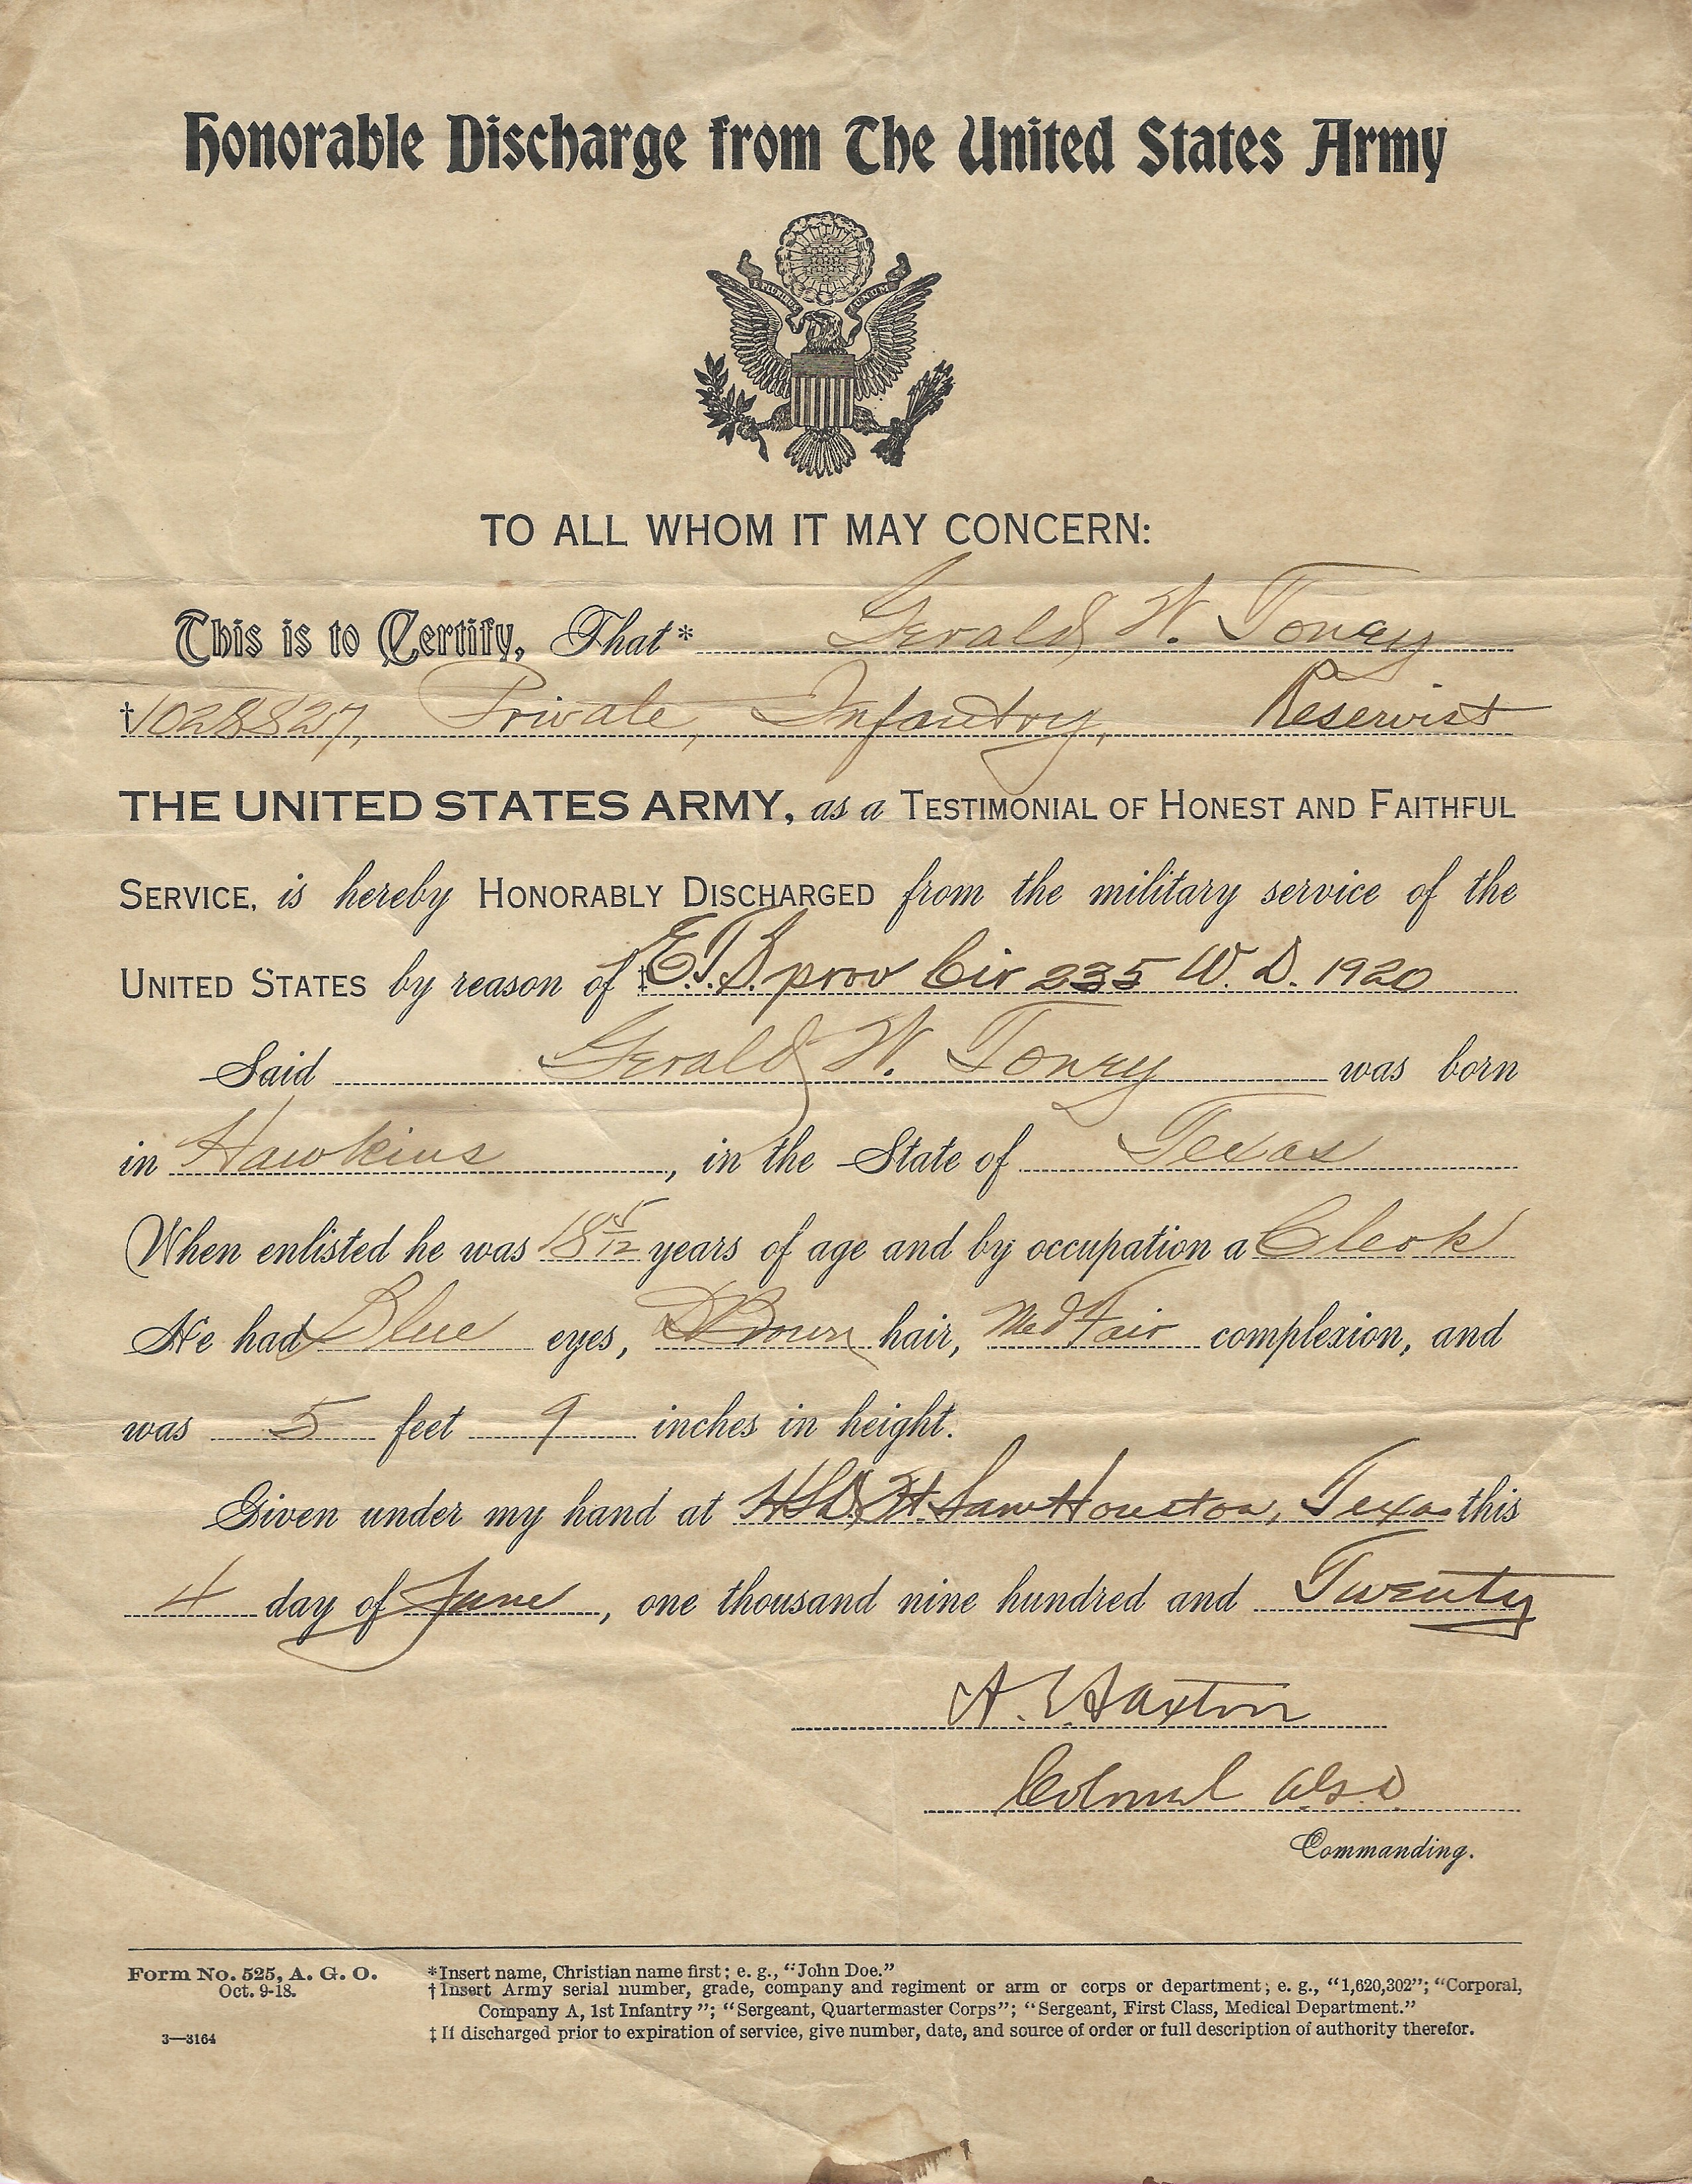 Honorable Discharge from The United States Army
E PLURIBUS UNUM
TO ALL WHOM IT MAY CONCERN:
This is to Certify, That* Gerald W. Toney
†1028827, Private, Infantry, Reservist
THE UNITED STATES ARMY, as a TESTIMONIAL OF HONEST AND FAITHFUL
SERVICE, is hereby HONORABLY DISCHARGED from the military service of the
UNITED STATES by reason of ‡ E.T.S. prov Cir 235 W. D. 1920
Said Gerald W. Toney was born
in Hawkins, in the State of Texas
When enlisted he was 18 5/12 years of age and by occupation a Clerk
He had Blue eyes, D Brown hair, Med Fair complexion, and
was 5 feet 9 inches in height.
Given under my hand at Ft. Sam Houston, Texas this
4 day of June, one thousand nine hundred and Twenty
Colonel
Commanding.
Form No. 525, A. G. O.
Oct. 9-18.
3—3164
*Insert name, Christian name first; e. g., “John Doe.”
†Insert Army serial number, grade, company and regiment or arm or corps or department; e. g., “1,620,302”; “Corporal,
Company A, 1st Infantry”; “Sergeant, Quartermaster Corps”; “Sergeant, First Class, Medical Department.”
‡If discharged prior to expiration of service, give number, date, and source of order or full description of authority therefor.